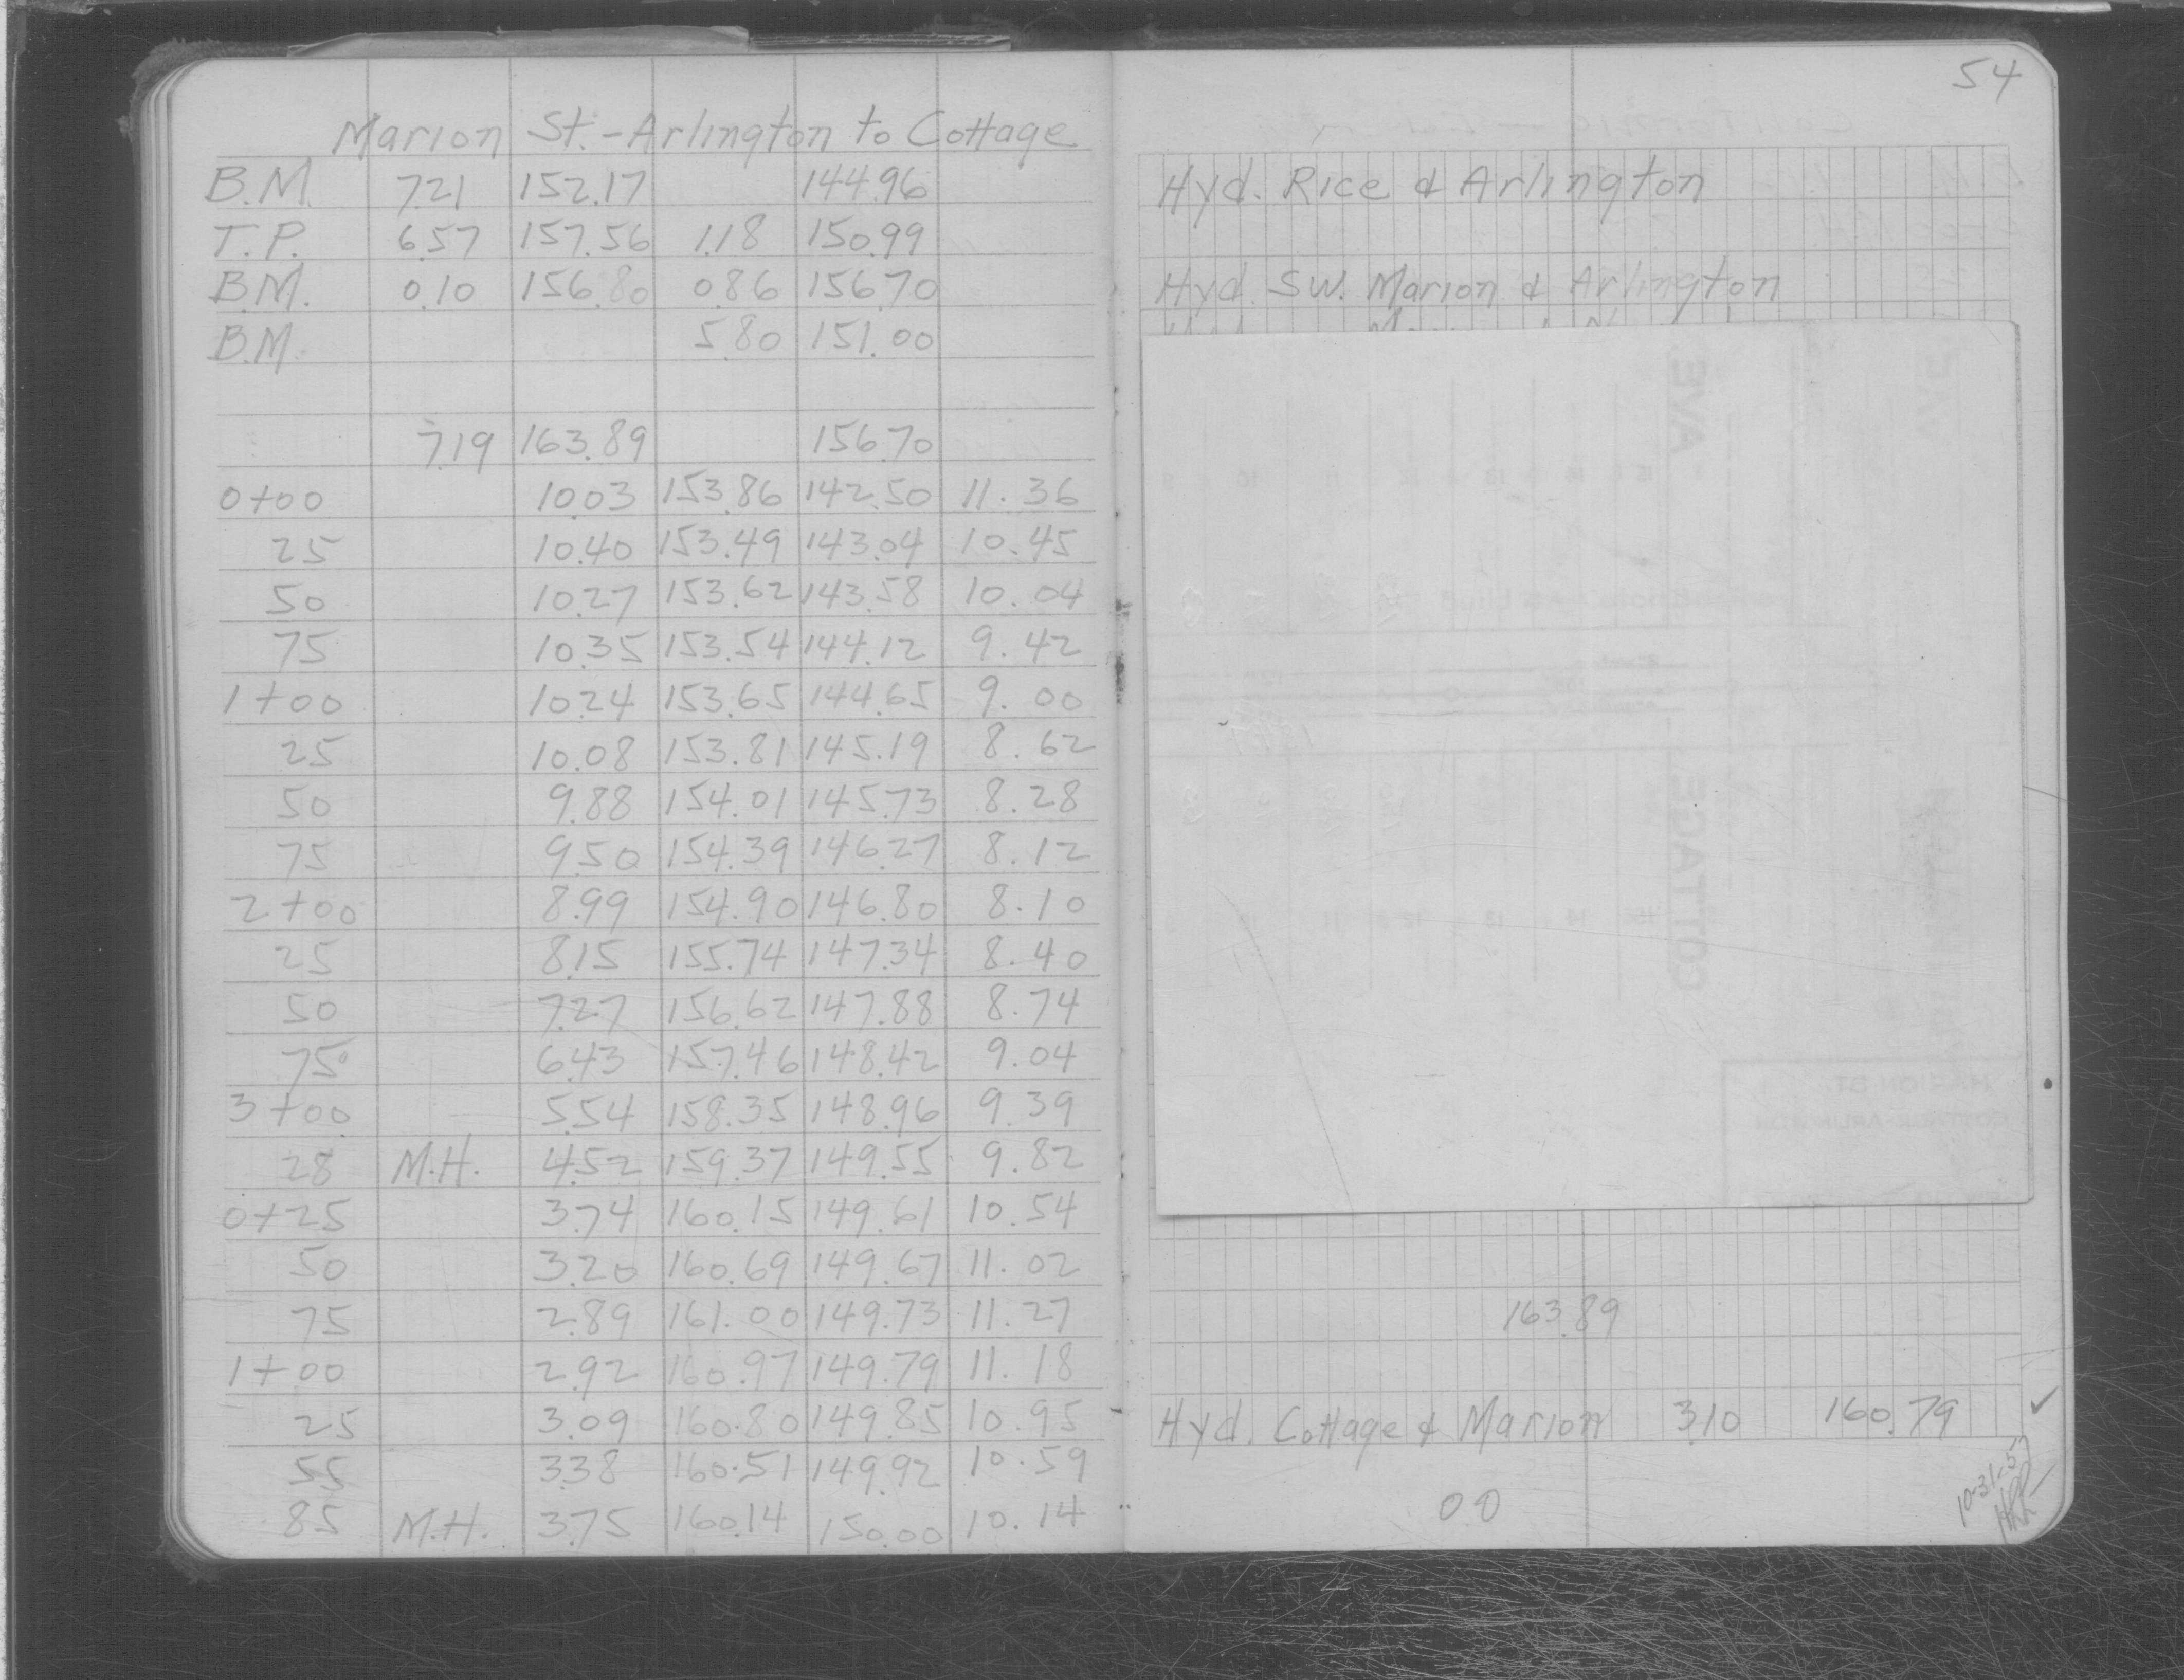 54
Marion St. - Arlington to Cottage
B.M. 7.21 152.17 144.96 Hyd. Rice & Arlington
T.P. 6.57 157.56 1.18 150.99
B.M. 0.10 156.80 0.86 156.70 Hyd. SW. Marion & Arlington
B.M. 5.80 151.00
7.19 163.89 156.70
0+00 10.03 153.86 142.50 11.36
25 10.40 153.49 143.04 10.45
50 10.27 153.62 143.58 10.04
75 10.35 153.54 144.12 9.42
1+00 10.24 153.65 144.65 9.00
25 10.08 153.81 145.19 8.62
50 9.88 154.01 145.73 8.28
75 9.50 154.39 146.27 8.12
2+00 8.99 154.90 146.80 8.10
25 8.15 155.74 147.34 8.40
50 7.27 156.62 147.88 8.74
75 6.43 157.46 148.42 9.04
3+00 5.54 158.35 148.96 9.39
28 M.H. 4.52 159.37 149.55 9.82
0+25 3.74 160.15 149.61 10.54
50 3.20 160.69 149.67 11.02
75 2.89 161.00 149.73 11.27 163.89
1+00 2.92 160.97 149.79 11.18
25 3.09 160.80 149.85 10.95 Hyd. Cottage & Marion 3.10 160.79 ✓
55 3.38 160.51 149.92 10.59
85 M.H. 3.75 160.14 150.00 10.14 00